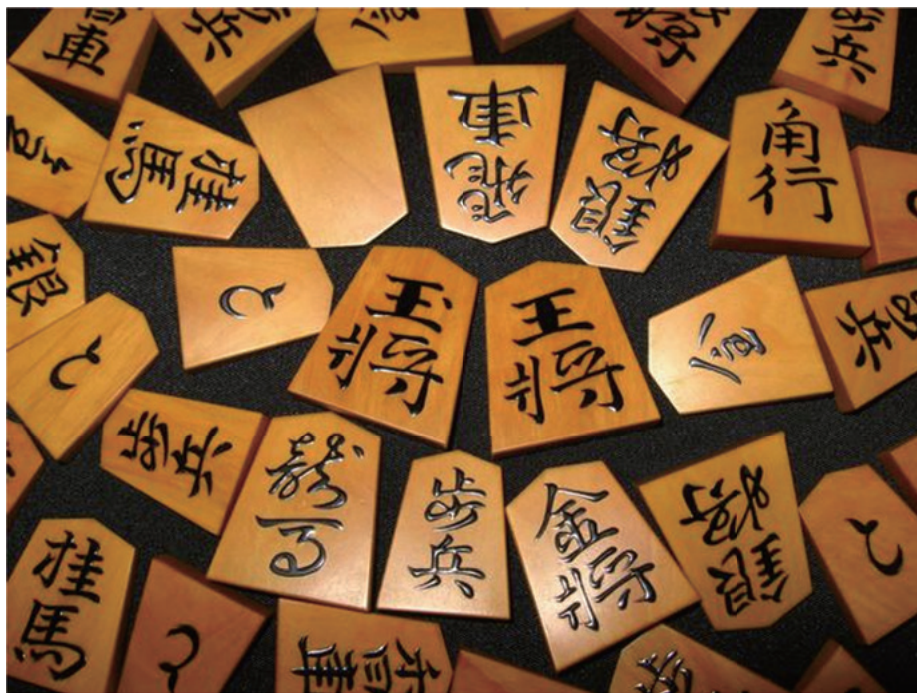 歩兵
桂馬
飛車
銀将
角行
銀
と
玉将
王将
と
歩兵
龍馬
歩兵
金将
銀将
と
桂馬
と
香車